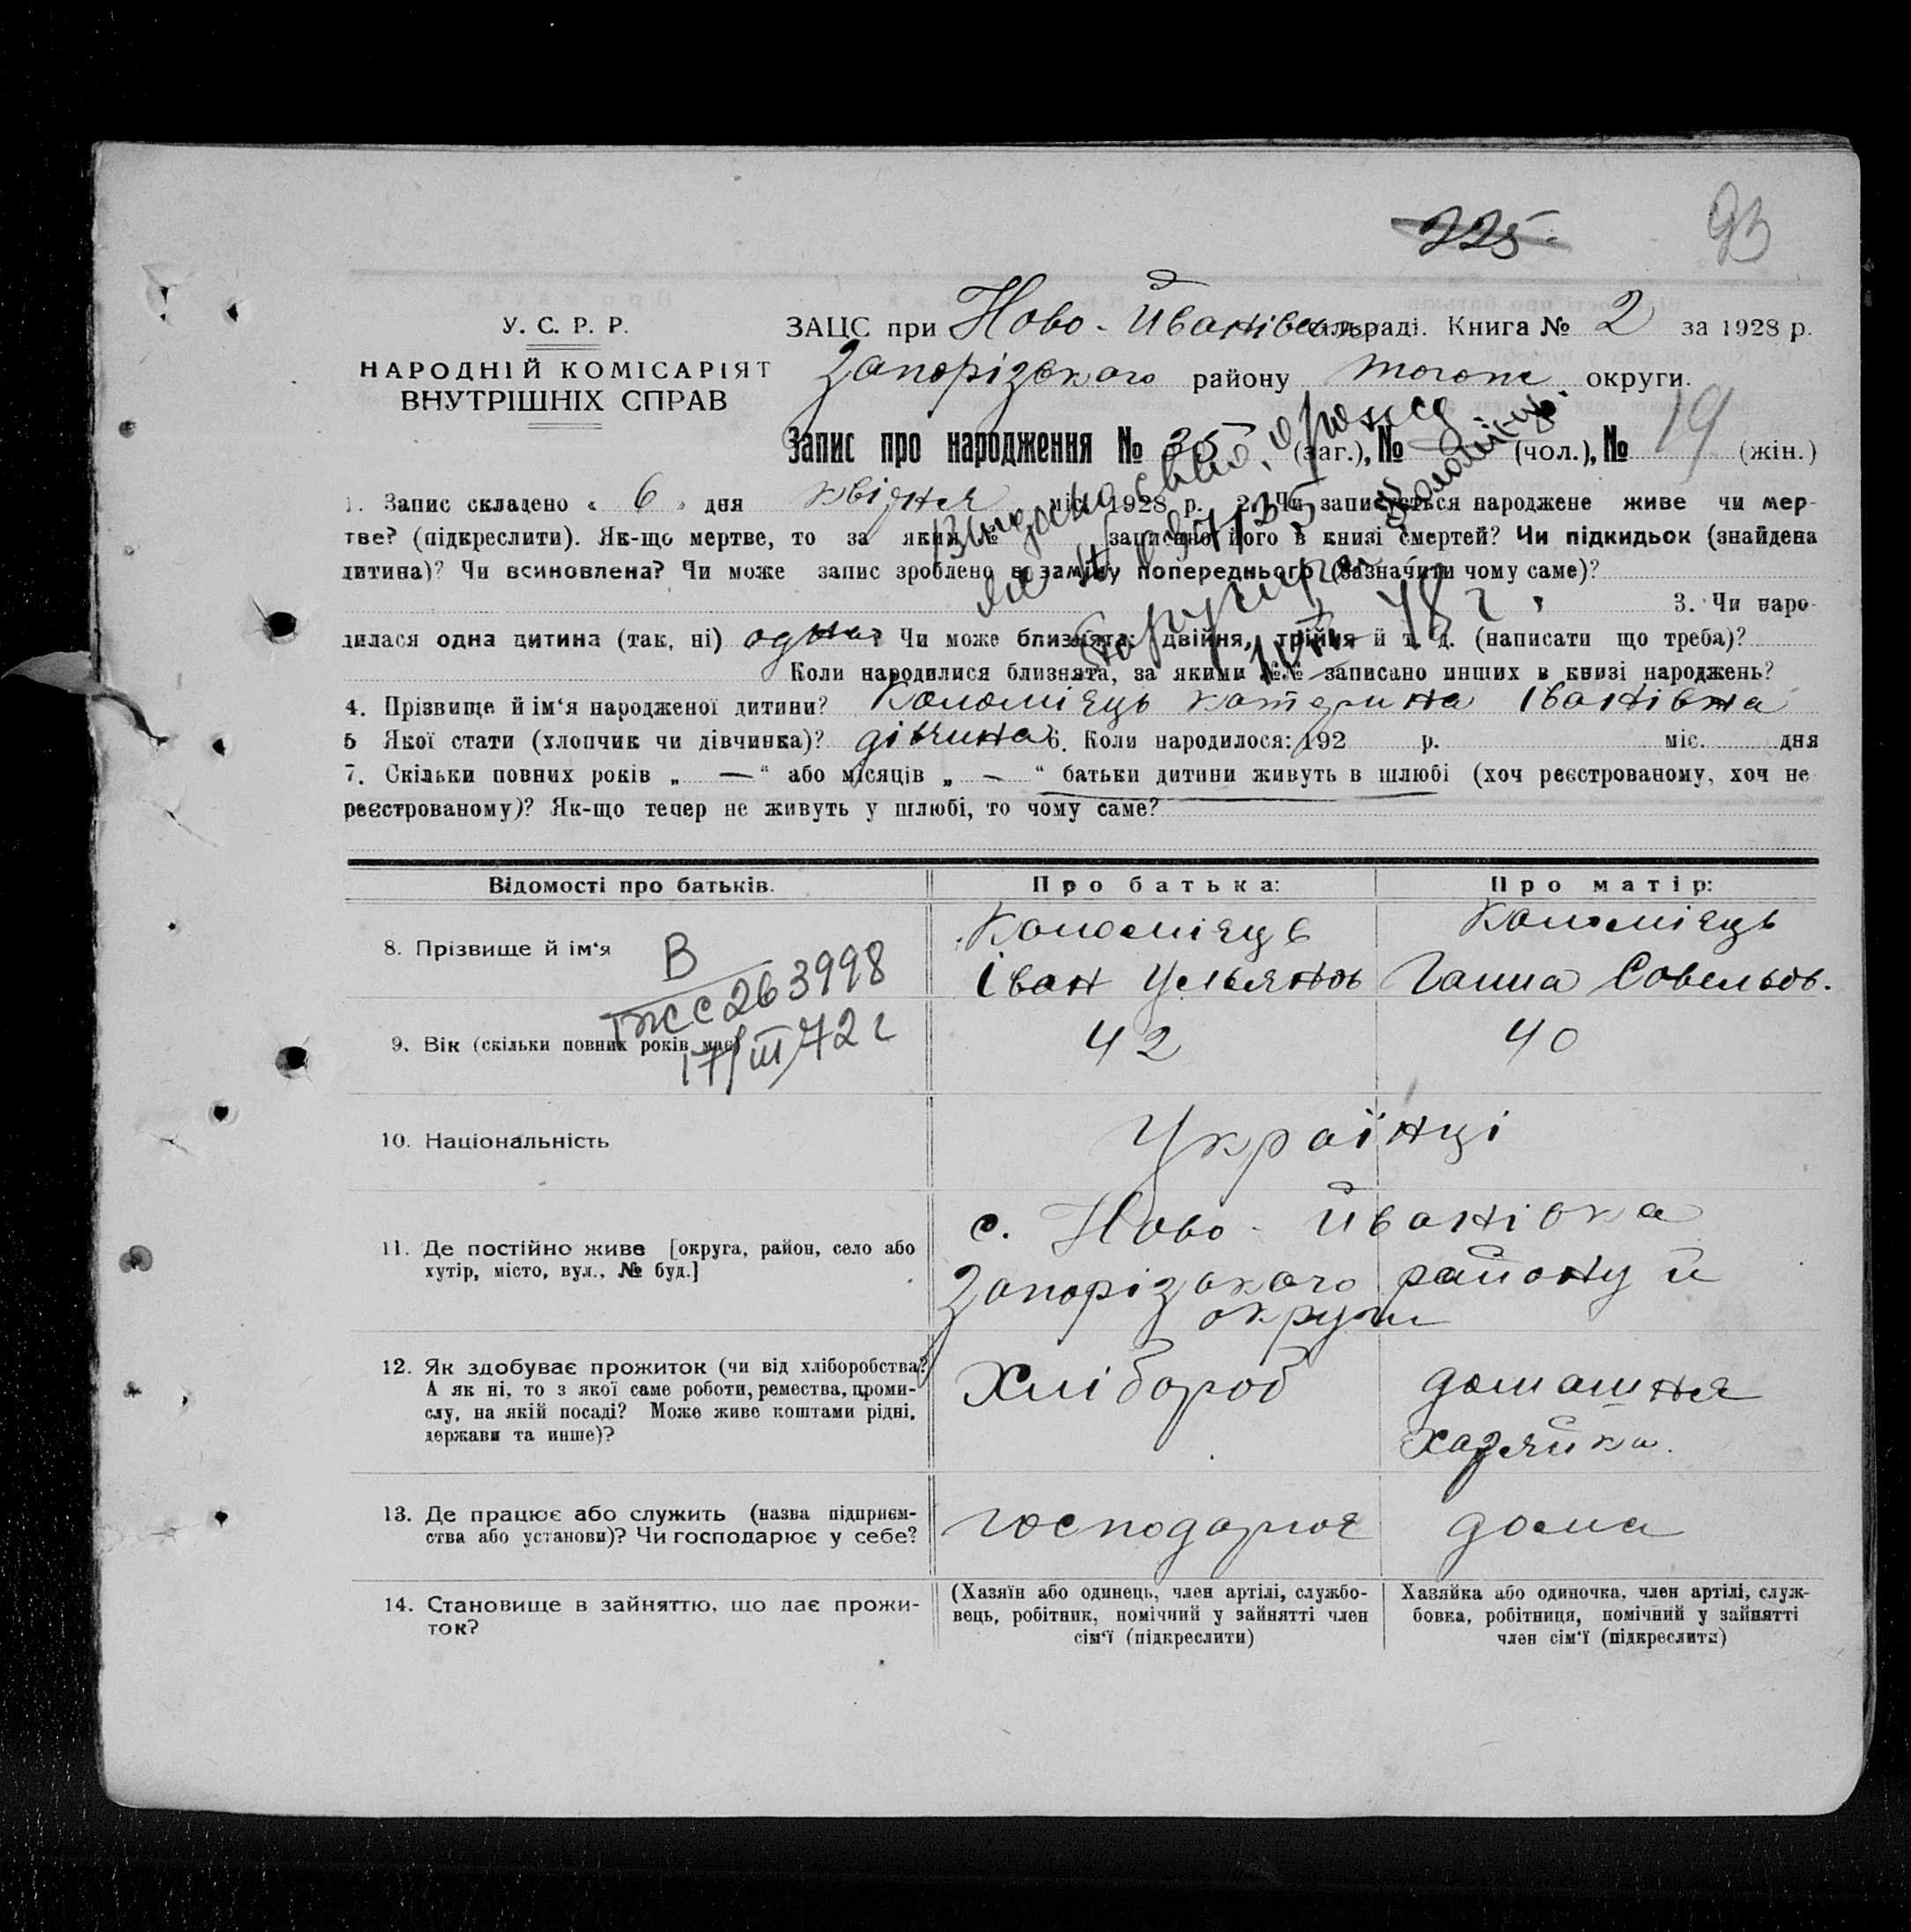 225
93
У. С. Р. Р.
НАРОДНІЙ КОМІСАРІЯТ
ВНУТРІШНІХ СПРАВ
ЗАЦС при Ново-Йванівськ. сільраді. Книга № 2 за 1928 р.
Запорізького району тогож округи.
Запис про народження № 35 (заг.), № (чол.), № 19 (жін.)
1. Запис складено « 6 » дня квітня міс. 1928 р. 2. Чи записується народжене живе чи мер-
тве? (підкреслити). Як-що мертве, то за яким № записано його в книзі смертей? Чи підкидьок (знайдена
дитина)? Чи всиновлена? Чи може запис зроблено в заміну попереднього (зазначити чому саме)?
3. Чи наро-
дилася одна дитина (так, ні) одна? Чи може близнята: двійня, трійня й т. д. (написати що треба)?
Коли народилися близнята, за якими №№ записано инших в книзі народжень?
4. Прізвище й ім‘я народженої дитини? Коломієць Катерина Іванівна
5 Якої стати (хлопчик чи дівчинка)? дівчина 6. Коли народилося: 192 р. міс. дня
7. Скільки повних років „ — “ або місяців „ — “ батьки дитини живуть в шлюбі (хоч реєстрованому, хоч не
реєстрованому)? Як-що тепер не живуть у шлюбі, то чому саме?
Відомості про батьків. Про батька: Про матір:
8. Прізвище й ім‘я Коломієць Іван Ульянов Коломієць Ганна Совельов.
В
ТЖСС 263998
17/III/72 г
9. Вік (скільки повних років має) 42 40
10. Національність Українці
11. Де постійно живе [округа, район, село або
хутір, місто, вул., № буд.]
с. Ново-Йванівка
Запорізького району й
округи
12. Як здобуває прожиток (чи від хліборобства?
А як ні, то з якої саме роботи, ремества, проми-
слу, на якій посаді? Може живе коштами рідні,
держави та инше)?
Хлібороб домашня
хазяйка.
13. Де працює або служить (назва підприєм-
ства або установи)? Чи господарює у себе?
господарює дома
14. Становище в зайняттю, що дає прожи-
ток?
(Хазяїн або одинець, член артілі, службо-
вець, робітник, помічний у зайнятті член
сім‘ї (підкреслити)
Хазяйка або одиночка, член артілі, служ-
бовка, робітниця, помічний у зайнятті
член сім‘ї (підкреслити)